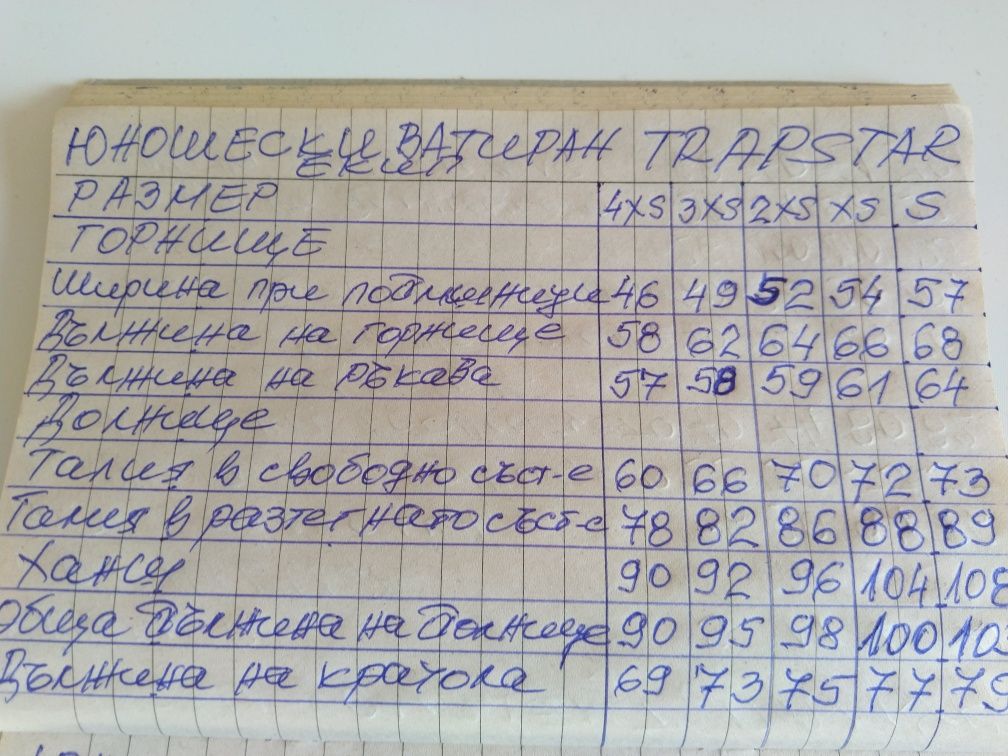 ЮНОШЕСКИ ВАТИРАН TRAPSTAR
ЕКИП
РАЗМЕР 4XS 3XS 2XS XS S
ГОРНИЩЕ
Ширина при подмишници 46 49 52 54 57
Дължина на горнище 58 62 64 66 68
Дължина на ръкава 57 58 59 61 64
Долнище
Талия в свободно съст-е 60 66 70 72 73
Талия в разтегнато съст-е 78 82 86 88 89
Ханш 90 92 96 104 108
Обща дължина на долнище 90 95 98 100
Дължина на крачола 69 73 75 77 79